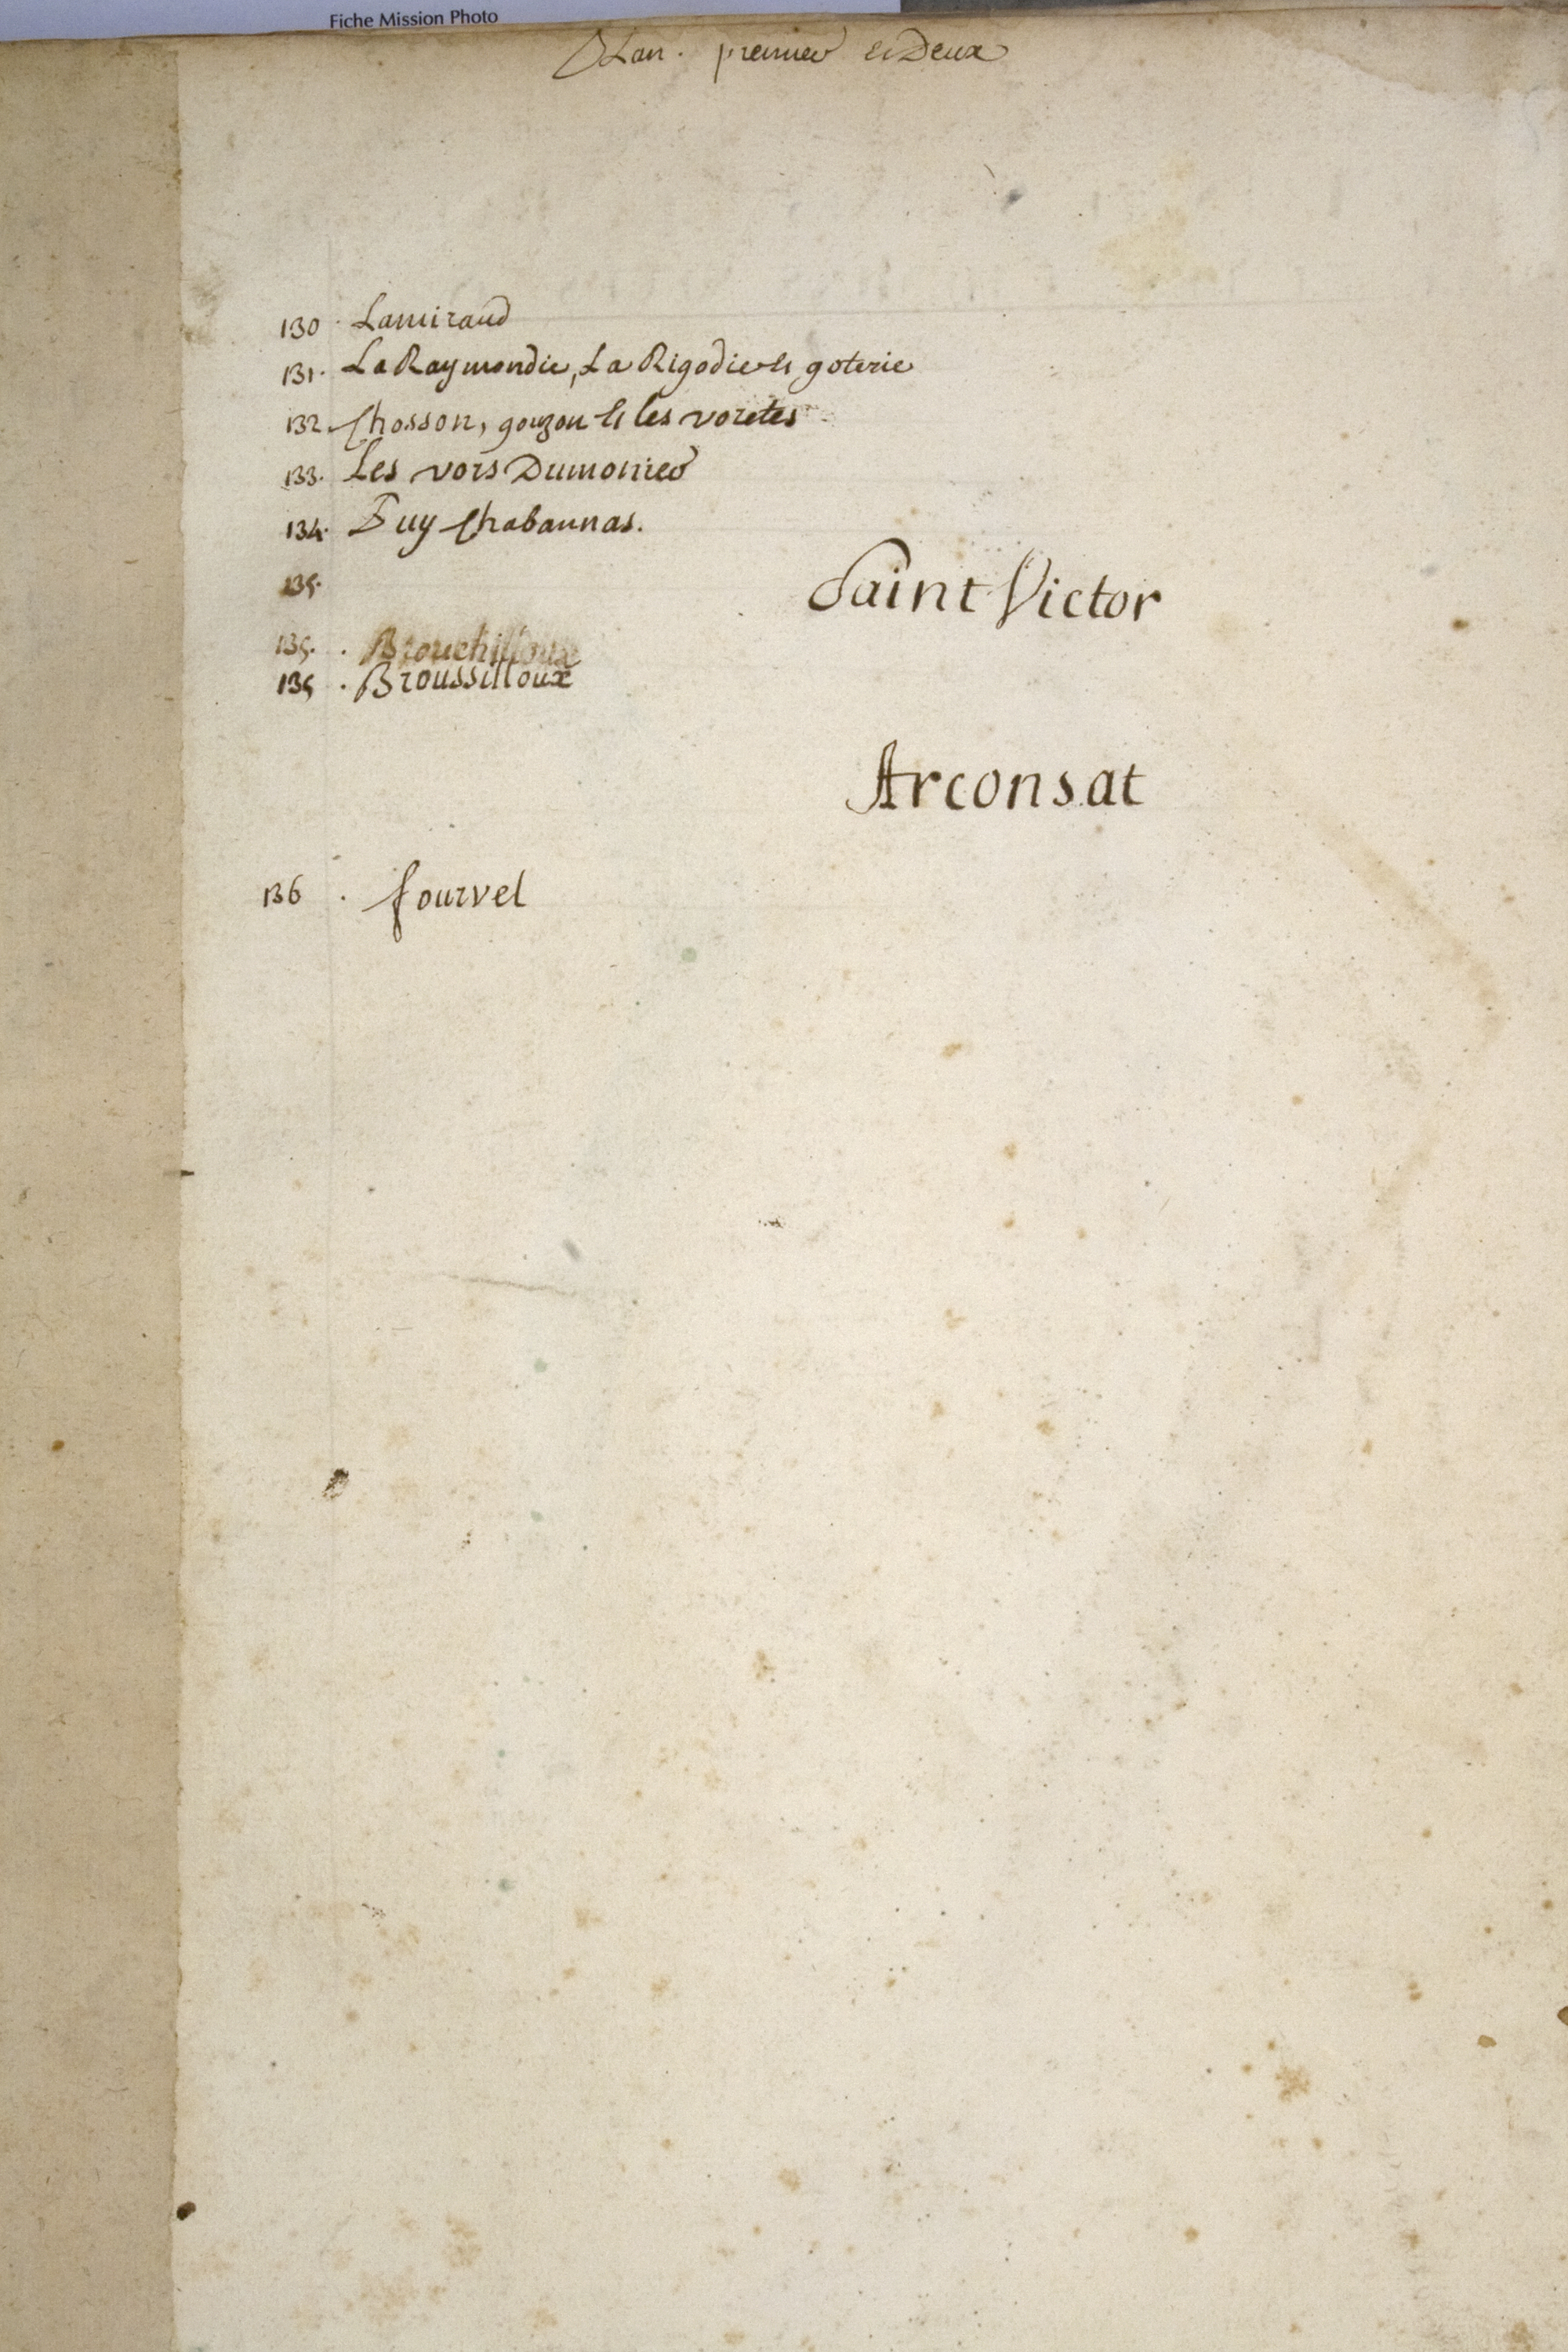 Fiche Mission Photo
Plan. premier et Deux
130. Lamiraud
131. La Raymondie, La Rigodie et goterie
132. Chosson, gouzon et les voretes
133. Les vors Dumonier
134. Puy Chabannas.
135.
Saint Victor
135. Brouchilloux
135. Broussilloux
Arconsat
136. fourvel